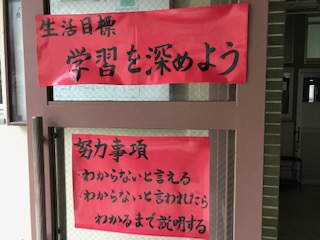 生活目標
学習を深めよう
努力事項
・わからないと言える
・わからないと言われたら
わかるまで説明する